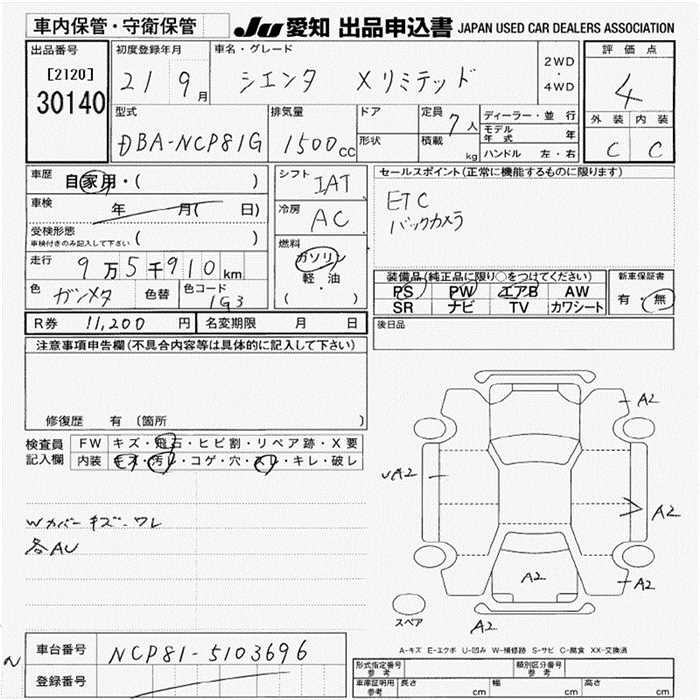 車内保管・守衛保管 JU 愛知 出品申込書 JAPAN USED CAR DEALERS ASSOCIATION
出品番号 初度登録年月 車名・グレード 2WD ・ 4WD 評価点
[2120] 21 9月 シエンタ Xリミテッド 4
30140
型式 排気量 ドア 定員 7人 ディーラー・並行 外装 内装
DBA-NCP81G 1500cc 形状 積載 kg モデル年式 年 C C
ハンドル 左・右
車歴 自家用・( ) シフト IAT セールスポイント(正常に機能するものに限ります)
車検 年 月( 日) 冷房 AC ETC
受検形態 バックカメラ
車検付きのみ記入して下さい ( )
燃料 ガソリン
走行 9万5千910km 軽・油 装備品(純正品に限り○をつけてください) 新車保証書
( ) PS PW エアB AW 有・無
色 ガンメタ 色替 色コード 1G3 SR ナビ TV カワシート
R券 11,200円 名変期限 月 日 後日品
注意事項申告欄(不具合内容等は具体的に記入して下さい)
修復歴 有 (箇所 )
検査員記入欄 FW キズ・飛石・ヒビ割・リペア跡・X要
内装 キズ・汚レ・コゲ・穴・スレ・キレ・破レ
Wカバー キズ・ワレ
各AU
A2
A2
A2
A2
A2
A2
スペア
A-キズ E-エクボ U-凹み W-補修跡 S-サビ C-腐食 XX-交換済
車台番号 NCP81-5103696
登録番号
N
形式指定番号 参考 類別区分番号 参考
車庫証明用 参考 長さ cm 幅 cm 高さ cm